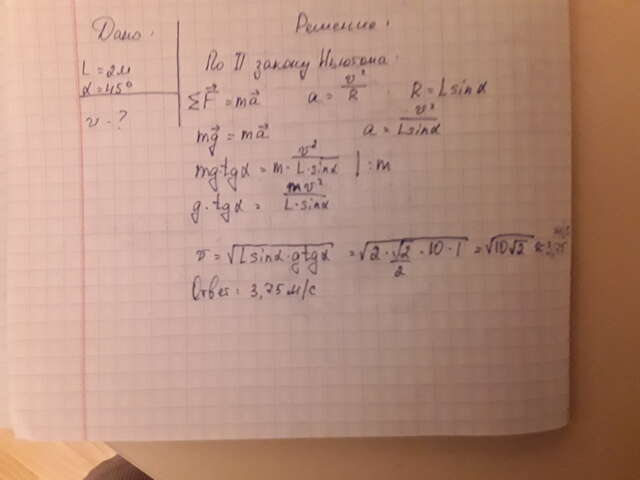 Дано:
L = 2м
α = 45°
v - ?
Решение:
По II закону Ньютона:
ΣF⃗ = ma⃗   a = v²/R   R = L sinα
mg⃗ = ma⃗   a = v²/L sinα
mg·tgα = m · v²/L·sinα | : m
g·tgα = mv²/L·sinα
v = √(L sinα · g tgα) = √(2 · √2/2 · 10 · 1) = √(10√2) ≈ 3,75
Ответ: 3,75 м/с